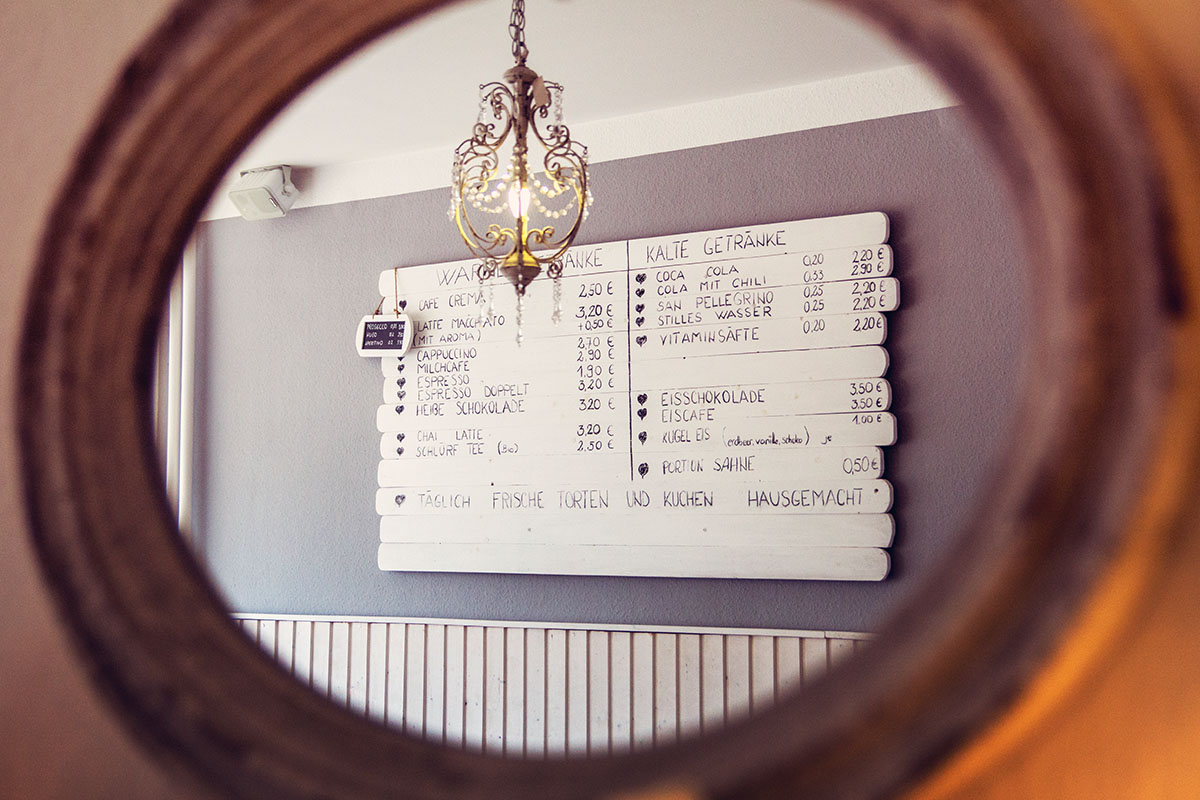 KALTE GETRÄNKE
CAFE CREMA 2,50 €
LATTE MACCHIATO 3,20 €
(MIT AROMA) +0,50 €
CAPPUCCINO 2,70 €
MILCHCAFE 2,90 €
ESPRESSO 1,90 €
ESPRESSO DOPPELT 3,20 €
HEIßE SCHOKOLADE 3,20 €
CHAI LATTE 3,20 €
SCHLÜRF TEE (BIO) 2,50 €
COCA COLA 0,20 2,20 €
COLA MIT CHILI 0,33 2,90 €
SAN PELLEGRINO 0,25 2,20 €
STILLES WASSER 0,25 2,20 €
VITAMINSÄFTE 0,20 2,20 €
EISSCHOKOLADE 3,50 €
EISCAFE 3,50 €
KUGEL EIS (erdbeer, vanille, schoko) je 1,00 €
PORTION SAHNE 0,50 €
TÄGLICH FRISCHE TORTEN UND KUCHEN HAUSGEMACHT
PROSECCO
HUGO